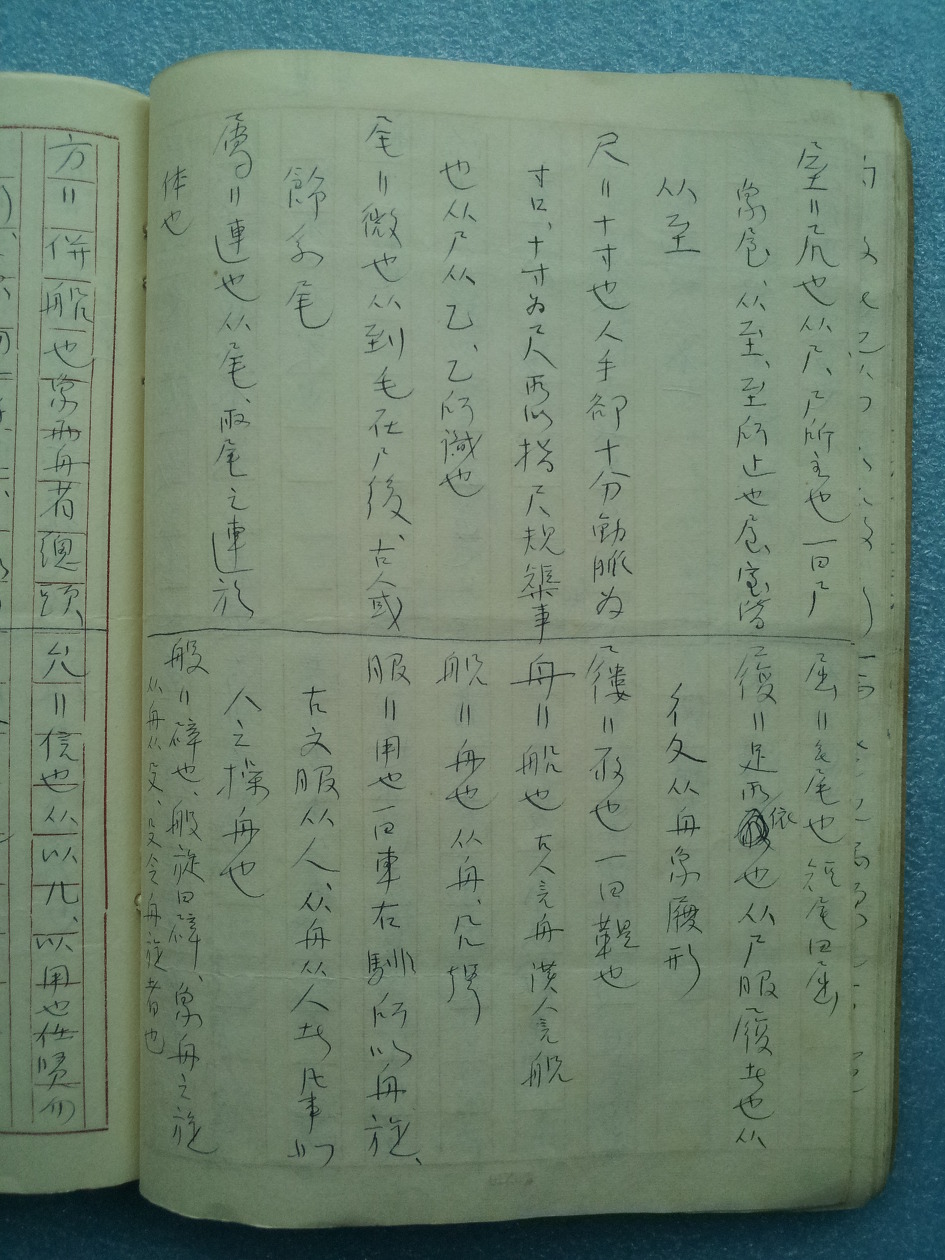 屋〃尻也从尸、尸所主也一曰尸
象屋、从至、至所止也屋室皆
从至
尺〃十寸也人手卻十分動脈为
寸口、十寸为尺所以指尺规榘事
也从尸从乙、乙所識也
尾〃微也从到毛在尸後、古人或
飾系尾
屬〃連也从尾、取尾之連於
体也
屈〃無尾也短尾曰屈
履〃足所依也从尸服履者也从
彳夂从舟象履形
屨〃履也一曰鞮也
舟〃船也古人言舟漢人言船
船〃舟也从舟、㕣声
服〃用也一曰車右騑所以舟旋、
古文服从人、从舟从人者凡事如
人之操舟也
般〃辟也、般旋曰辟、象舟之旋
从舟从殳、殳令舟旋者也
方〃併船也象两舟者總頭、
允〃信也从以儿、以用也任贤勿